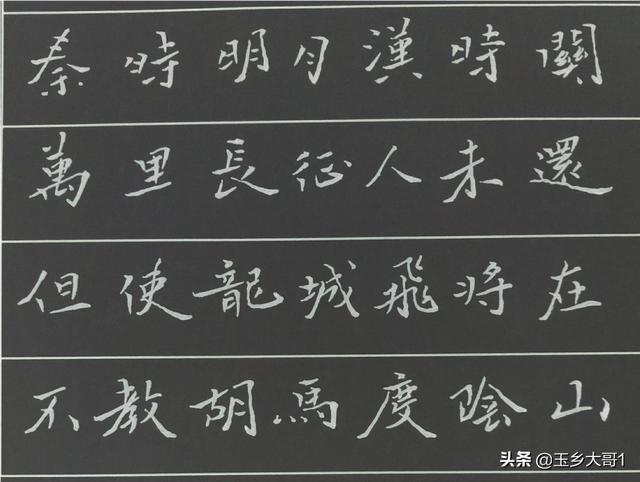 秦時明月漢時關
萬里長征人未還
但使龍城飛將在
不教胡馬度陰山
头条 @玉乡大哥1